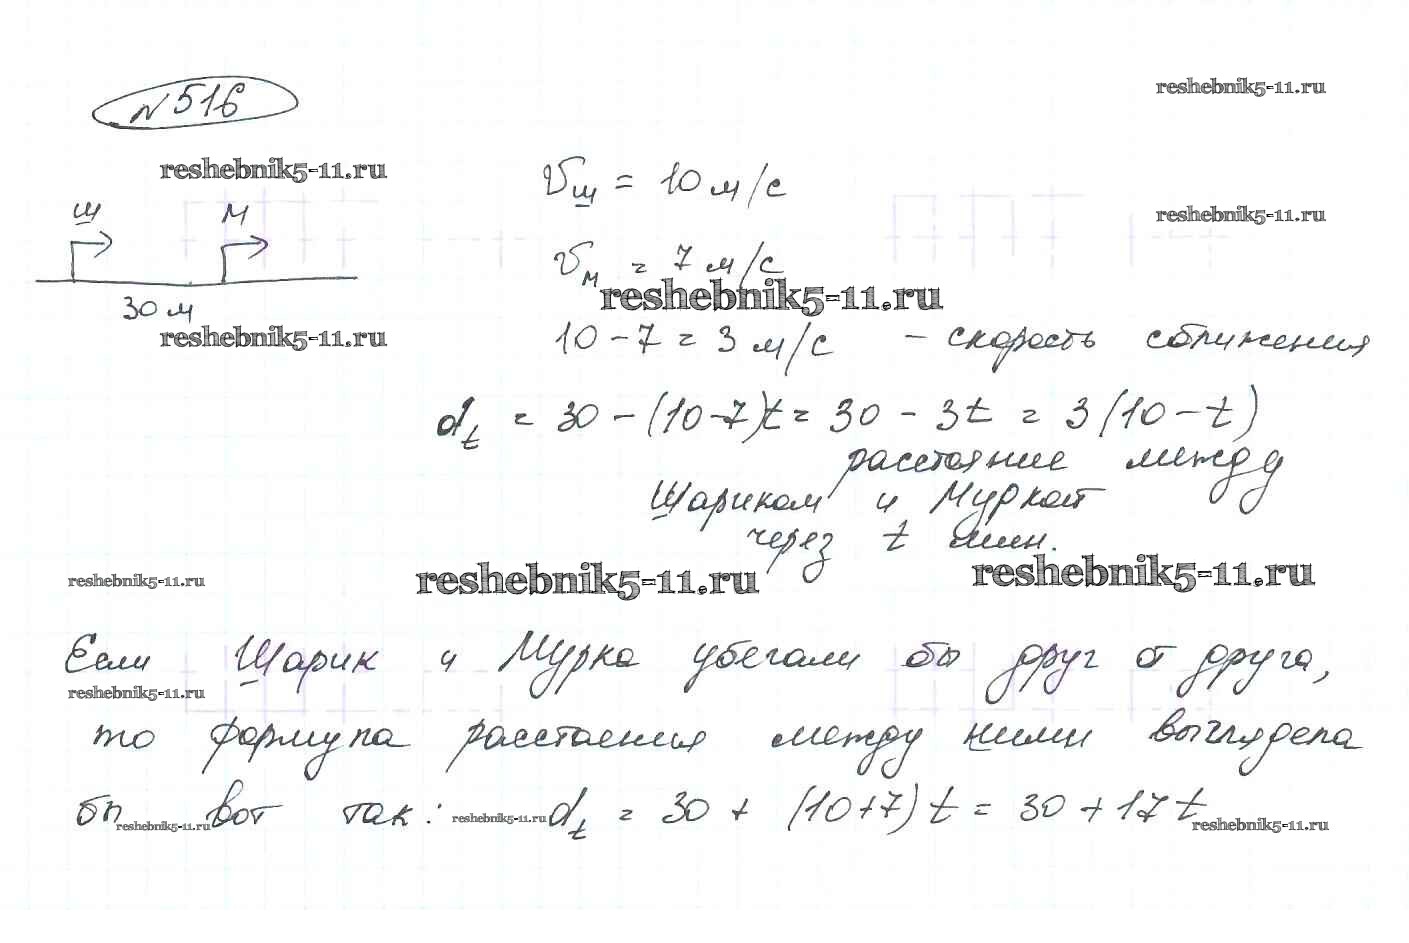 №516
reshebnik5-11.ru
reshebnik5-11.ru
Vш = 10 м/с
ш М
reshebnik5-11.ru
Vм = 7 м/с
30 м
reshebnik5-11.ru
reshebnik5-11.ru
10 - 7 = 3 м/с - скорость сближения
dt = 30 - (10-7)t = 30 - 3t = 3(10-t)
расстояние между
Шариком и Муркой
через t мин.
reshebnik5-11.ru reshebnik5-11.ru reshebnik5-11.ru
Если Шарик и Мурка убегали бы друг от друга,
reshebnik5-11.ru
то формула расстояния между ними выглядела
бы вот так: dt = 30 + (10+7)t = 30 + 17t
reshebnik5-11.ru reshebnik5-11.ru reshebnik5-11.ru